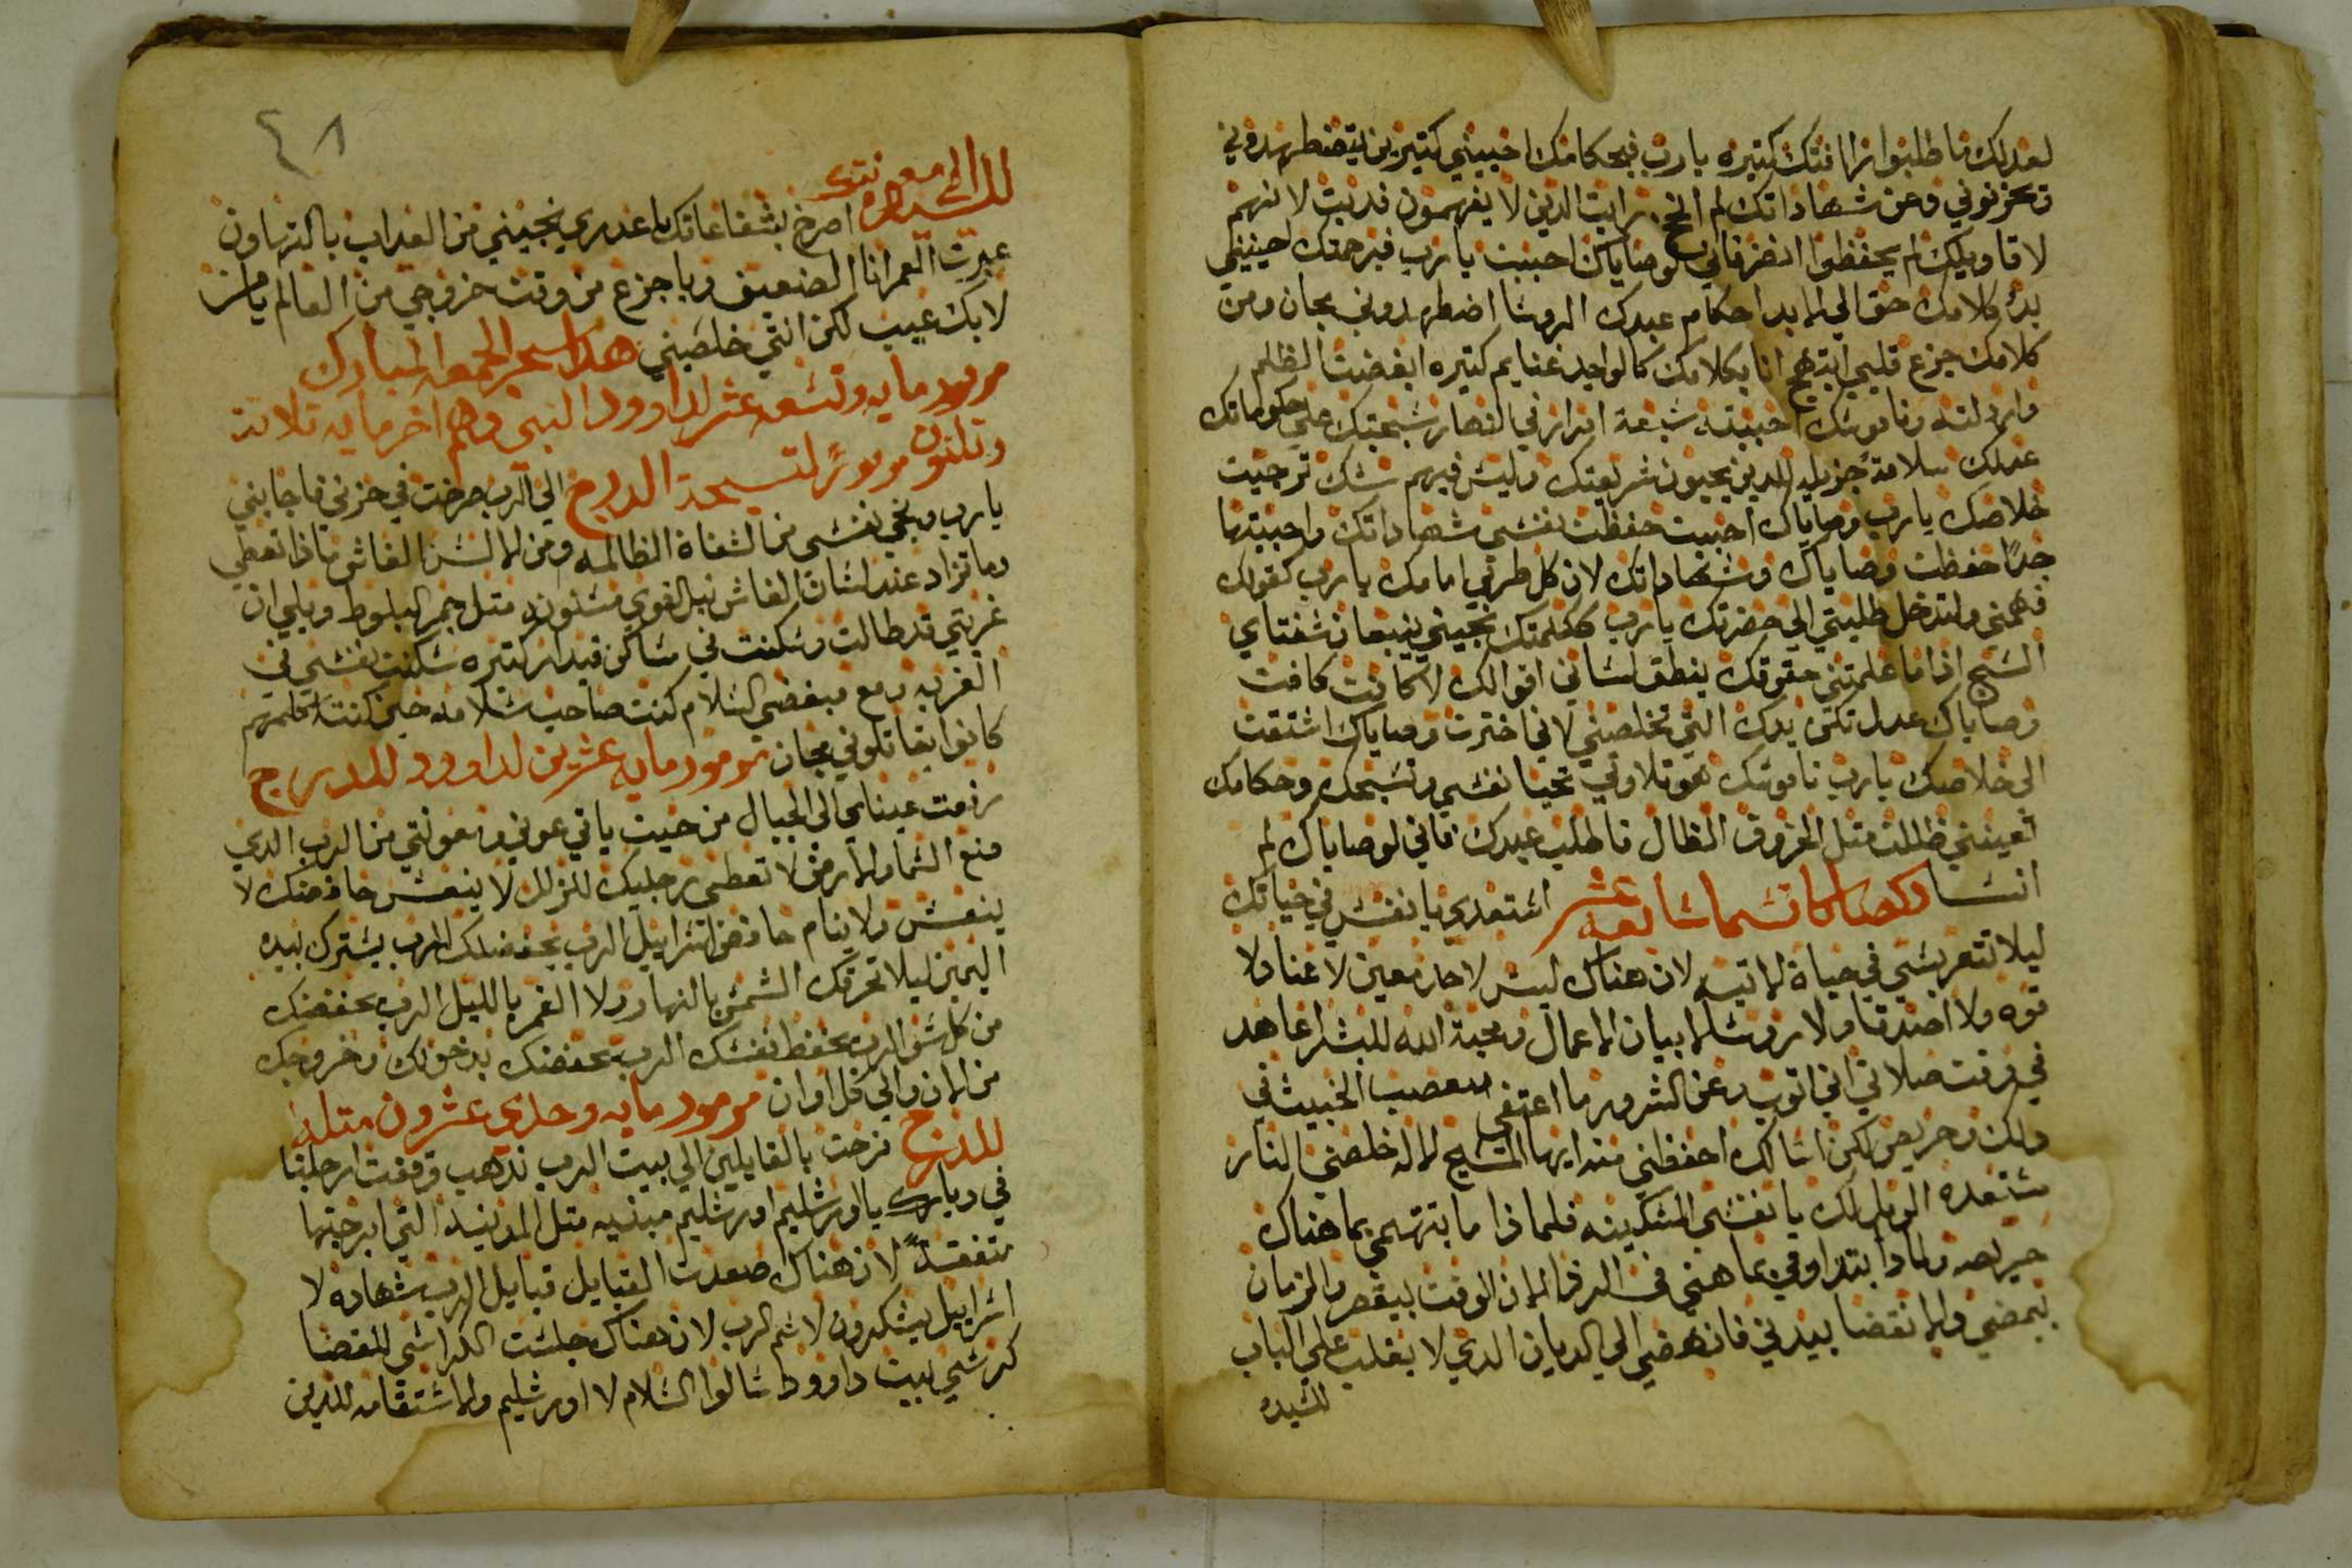 لعدلك ما طلبوا رافتك كتيره يارب فبحكامك احييني كتيرين يضطهدوني
وتحزنوني وعن شهاداتك لم انح رايت الدين لا يفهمون فدبت لانهم
لاقاويلك لم يحفظوا انضر فاني لوصاياك احببت يا رب فبرحمتك احييني
بدو كلامك حق الي الابد احكام عبدك الروسا اضطهدوني مجان ومن
كلامك جزع قلبي ابتهج انا بكلامك كالواجد غنايم كتيره ابغضت الظلم
وارذلته وناموسك احببته سبعة امرار في النهار سبحتك علي حكوماتك
عدلك سلامة جزيله للدين يحبون شريعتك وليس فيهم شك ترجيت
خلاصك يا رب وصاياك احببت حفظت نفسي شهاداتك واحببتها
جدًا حفظت وصاياك وشهاداتك لان كل طرقي امامك يا رب كقولك
فهمني ولتدخل طلبتي الي حضرتك يا رب ككلمتك نجيني ينبعان شفتاي
السبح اذا ما علمتني حقوقك ينطق لساني اقوالك لا كانت كافت
وصاياك عدل تكن يدك التي تخلصني لاني اخترت وصاياك اشتقت
الي خلاصك يا رب ناموسك هو تلاوتي تحيا نفسي وتسبحك وحكامك
تعينني ظللت متل الخروف الضال فاطلب عبدك فاني لوصاياك لم
انسا اشتعدي يا نفس في حياتك
ليلا تتعربسي في حياة الاتيه لان هناك ليس لاحد معين لا غنا ولا
قوه ولا اصدقا ولا روسا الا بيان الاعمال ومحبة الله للبشر اعاهد
في وقت صلاتي اني اتوب وعن الشرور ما اعتفي الخبيث في
ولكن وحريص لكن اسالك احفظني منه ايها المسيح الاله خلصني النار
مستعده الويل لك يا نفسي المسكينه فلماذا ما بتهتمي بما هناك
حريصه ولماذا ابتداوفي بما هني في الدفر الان الوقت بيقصر والزمان
بيمضي والانقضا بيدني فانهضي الي الديان الدي لا يغلب علي الباب
للسيده
٤٨
للسيده الي معونتك اصرخ بشفاعاتك يا عدري نجيني من العداب بالتهاون
عبرت العمر انا الضعيف وباجزع من وقت خروجي من العالم يا من
لا بك عيب لكن انتي خلصيني هدا سحر الجمعه المبارك
مزمور مايه وتسعه عشر لداوود النبي وهم اخر مايه تلاته
وتلتون مزمورً لتسبحة الدرج الي الرب صرخت في حزني فاجابني
يا رب ونجي نفسي من الشفاة الظالمه ومن السن الغاش ماذا تعطي
وما تزاد عند لسان الغاش نبل القوي مسنونه متل جمر البلوط ويلي ان
غربتي قد طالت وسكنت في مساكن قيدار كتيره سكنت نفسي في
الغربه ومع مبغضي السلام كنت صاحب سلامه حين كنت اكلمهم
كانوا يقاتلوني مجان مزمور مايه عشرين لداوود للدرج
رفعت عيناي الي الجبال من حيت ياتي عوني ومعونتي من الرب الدي
صنع السما والارض لا تعطي رجليك للزلل لا ينعس حافضك لا
ينعس ولا ينام حافض اسراييل الرب يحفضك الرب يسترك بيده
اليمين ليلا تحرقك الشمس بالنهار ولا القمر بالليل الرب يحفضك
من كل سو الرب يحفظ نفسك الرب يحفضك بدخولك وخروجك
من الان والي كل اوان مزمور مايه وحادي عشرون متله
للدرج فرحت بالقايلين الي بيت الرب ندهب وقفت ارجلنا
في ديارك يا اورشليم اورشليم مبنيه متل المدينه التي ابرجتها
متفقةً لان هناك صعدت القبايل قبايل الرب شهاده لا
اسراييل يشكرون لاسم الرب لان هناك جلست الكراسي للقضا
كرسي بيت داوود اسالوا السلام لا اورشليم والاستقامه للدين